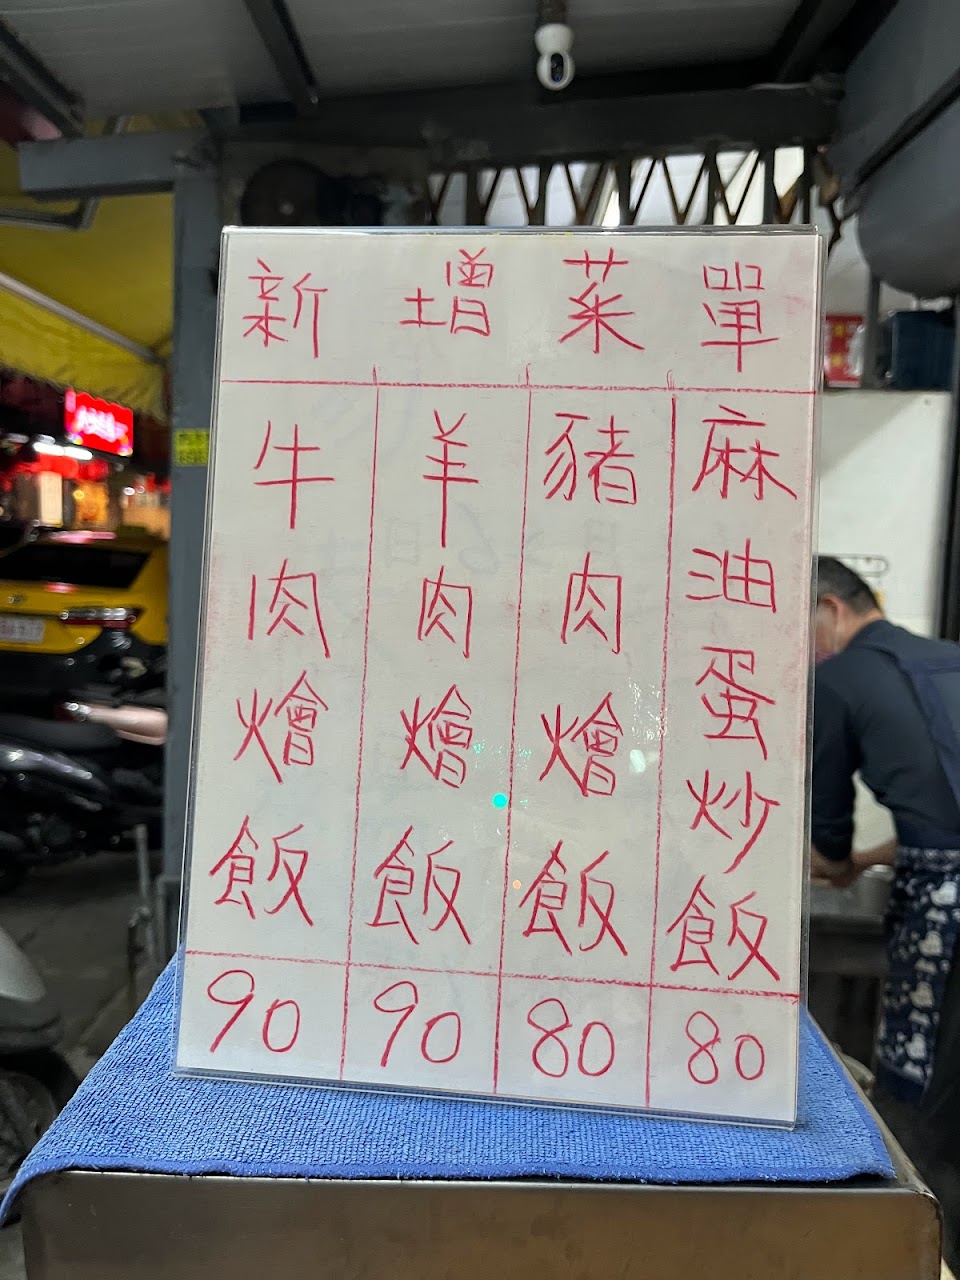 新增菜單
牛肉燴飯
90
羊肉燴飯
90
豬肉燴飯
80
麻油蛋炒飯
80